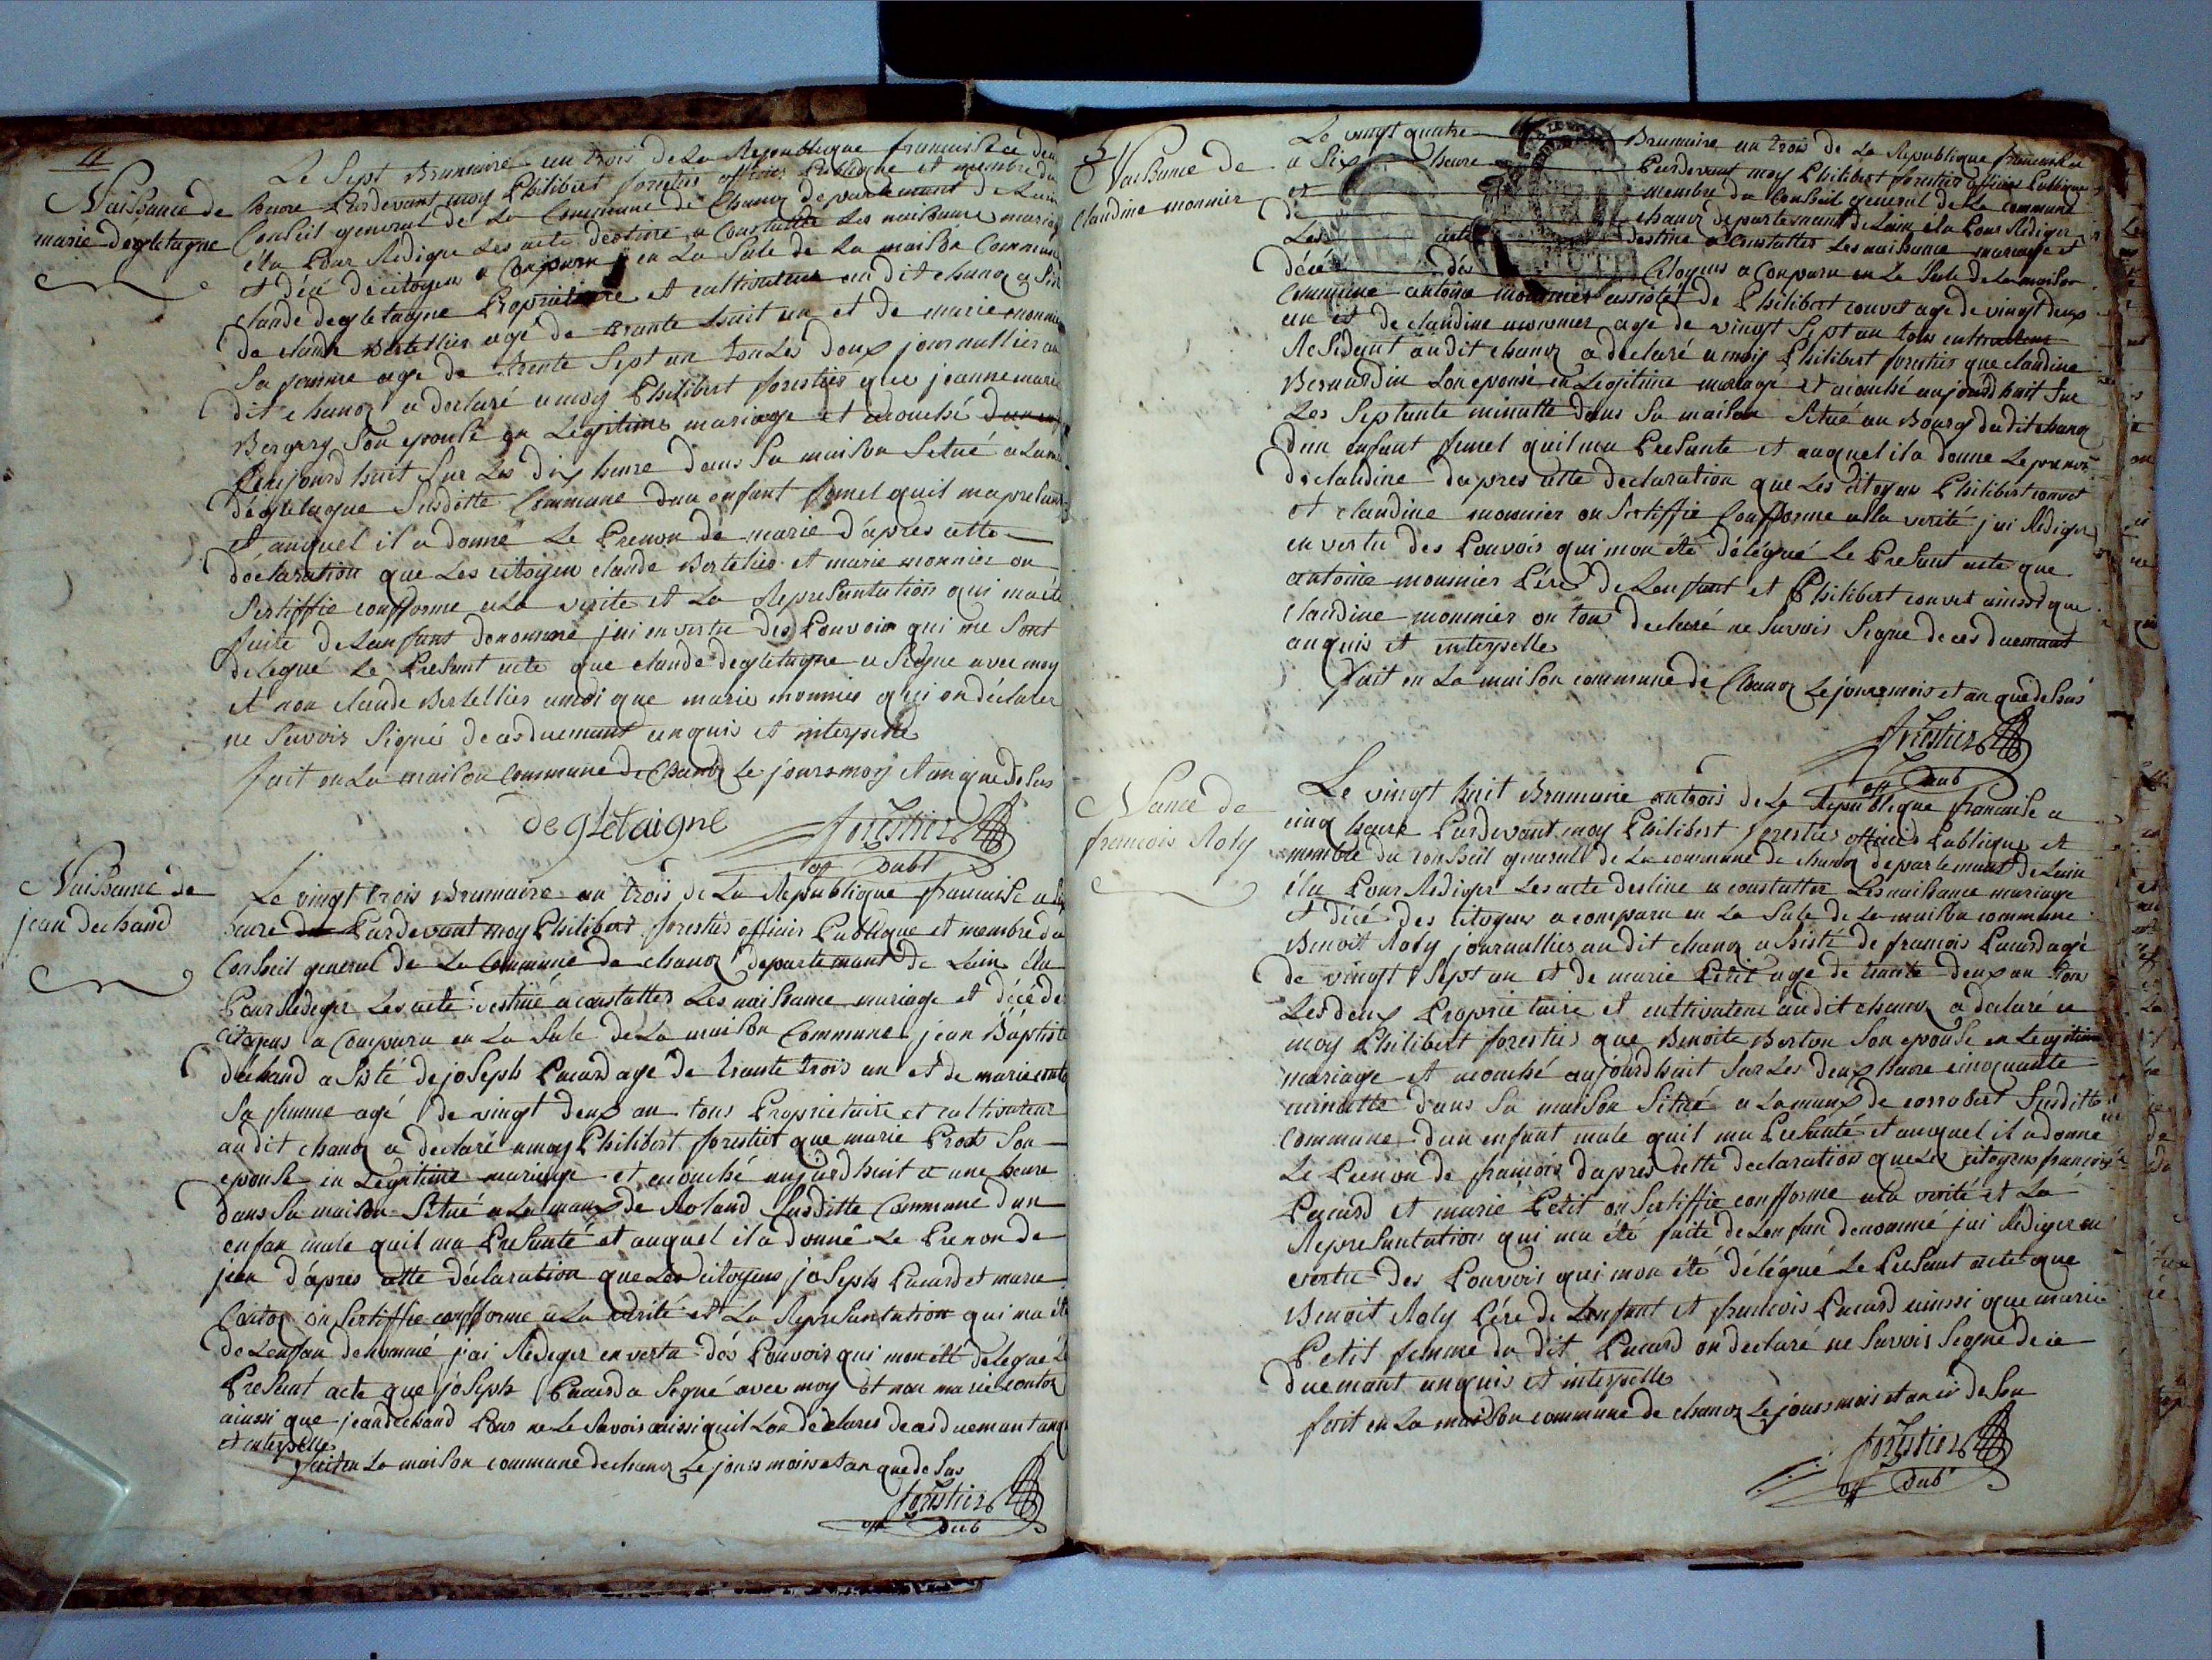 11
Naissance de
marie degletagne
Le Sept Brumaire an trois de La Republique francaise a deux
heure Pardevant moy Philibert forestier officier Publique et membre du
Conseil general de La Commune de Chanoz departemant de Lain
élu Pour Rediger Les acte destiné a Constatter Les naissance mariage
et décé de citoyen a Comparu en La Sale de La maison Commune
claude degletagne Proprietaire et cultivateur au dit chanoz assisté
de claude Bertellier agé de trante huit an et de marie monnier
Sa femme age de trente Sept an tou Les doux journallier au
dit chanoz a declaré a moy Philibert forestier que jeanne marie
Bergery Son epouse en Legitime mariage et acouché
aujourd huit Sur Les dix heure dans Sa maison Situé a
degletagne Susditte Commune dun enfant femel quil ma presanté
et auquel il a donné Le Prenon de marie d'apres cette
declaration que Les citoyen claude Bertelier et marie monnier on
Sertiffie confforme a La verite et La Represantation qui ma été
faite de Lanfant denommé jai en vertu des Pouvoir qui me Sont
delegué Le Presant acte que claude degletagne a Signe avec moy
et non claude Bertellier ainsi que marie monnier qui on déclarer
ne Savoir Signé de ce duemant enquis et interpellé
fait en La maison Commune de Chanoz Le jours moy et an que de Sus
deglétaigne forestier
off Publ
Naissance de
jean dechand
Le vingt trois Brumaire an trois de La Republique francaise a dix
heure Pardevant moy Philibert forestier officier Publique et membre du
Conseil general de La Commune de chanoz departemant de Lain élu
Pour Rediger Les acte destiné a constatter Les naissance mariage et décé de
citoyens a Comparu en La Sale de La maison Commune jean Baptiste
dechand asisté de joseph Pacard agé de trante trois an et de marie contoz
Sa femme agé de vingt deux an tous Proprietaire et cultivateur
au dit chanoz a declaré a moy Philibert forestier que marie Prost Son
epouse in Legitime mariage et acouché aujourd huit a une heure
dans Sa maison Situé a La manx de Roland Susditte Commune dun
enfan male quil ma Presanté et auquel il a donné Le Prenon de
jean d'apres cette déclaration que Les citoyens joseph Pacard et marie
Contoz on Sertiffie confforme a La verité et La Represantation qui ma été
de Lenfan denommé j'ai Rediger en vertu dés Pouvoir qui mon été delegué Le
Presant acte que joseph Pacard a Segné avec moy et non marie contoz
ainssi que jean dechand Pour ne Le Savoir aissi quil Lon declarer de ce duemant anquis
et interpellé
fait en La maison commune de chanoz Le jours mois et an que de Sus
forestier
off Pub
Naissance de
claudine monnier
Le vingt quatre Brumaire an trois de La Republique francaise
a Six heure Pardevant moy Philibert forestier officier Publique
et membre du Conseil general de La Commune
de chanoz departemant de Lain élu Pour Rediger
Les acte destiné a Constatter Les naissance mariage et
décé dés Citoyens a Comparu en La Sale de La maison
Commune antoine monnier assisté de Philibert convet age de vingt deux
an et de claudine monnier age de vingt Sept an tous cultivateur
Residant audit chanoz a declaré a moy Philibert forestier que claudine
Bernardin Son epouse en Legitime mariage et acouché aujourdhuit Sur
Les Septante minutte dans Sa maison Situé au Bourg du dit chanoz
dun enfant femel quil ma Presante et auquel il a donne Le prenon
de claudine dapres cette declaration que Les citoyen Philibert convet
et claudine monnier on Sertiffie Confforme a la verité jai Rediger
en vertu des Pouvoir qui mon été délégué Le Presant acte que
antoine monnier Pére de Lenfant et Philibert convet ainssi que
claudine monnier on tous declaré ne Savoir Segne de ces duemant
anquis et interpelle
Fait en La maison commune de Chanoz Le jours mois et an que de Sus
forestier
off Pub
Nance de
francois Roly
Le vingt huit Brumaire an trois de La Republique francaise a
cinq heure Pardevant moy Philibert forestier officier Publique et
membre du conseil general de La commune de chanoz departemant de Lain
élu Pour Rediger Les acte destine a constatter Les naissance mariage
et décé des citoyens a comparu en La Sale de La maison commune
Benoit Roly journallier au dit chanoz assisté de francois Pacard agé
de vingt Sept an et de marie Petit age de trante deux an tous
Les deux Proprietaire et cultivateur audit chanoz a declaré a
moy Philibert forestier que Benoite Berton Son epouse en Legitime
mariage et acouché aujourdhuit Sur Les deux heure cinquante
minutte dans Sa maison Situé a La manx de corrobert Susditte
Commune dun enfant male quil ma Presanté et auquel il a donne
Le Prenon de francois dapres cette declaration que Les citoyens francois
Pacard et marie Petit on Sertiffie confforme a la verité et La
Represantation qui ma été faite de Lenfan denommé jai Rediger en
vertu des Pouvoir qui mon été délégué Le Presant acte que
Benoit Roly Pére de Lenfant et francois Pacard ainssi que marie
Petit femme du dit Pacard on declaré ne Savoir Segne de ce
duemant anquis et interpelle
fait en La maison commune de chanoz Le jours mois et an de Sus
forestier
off Pub